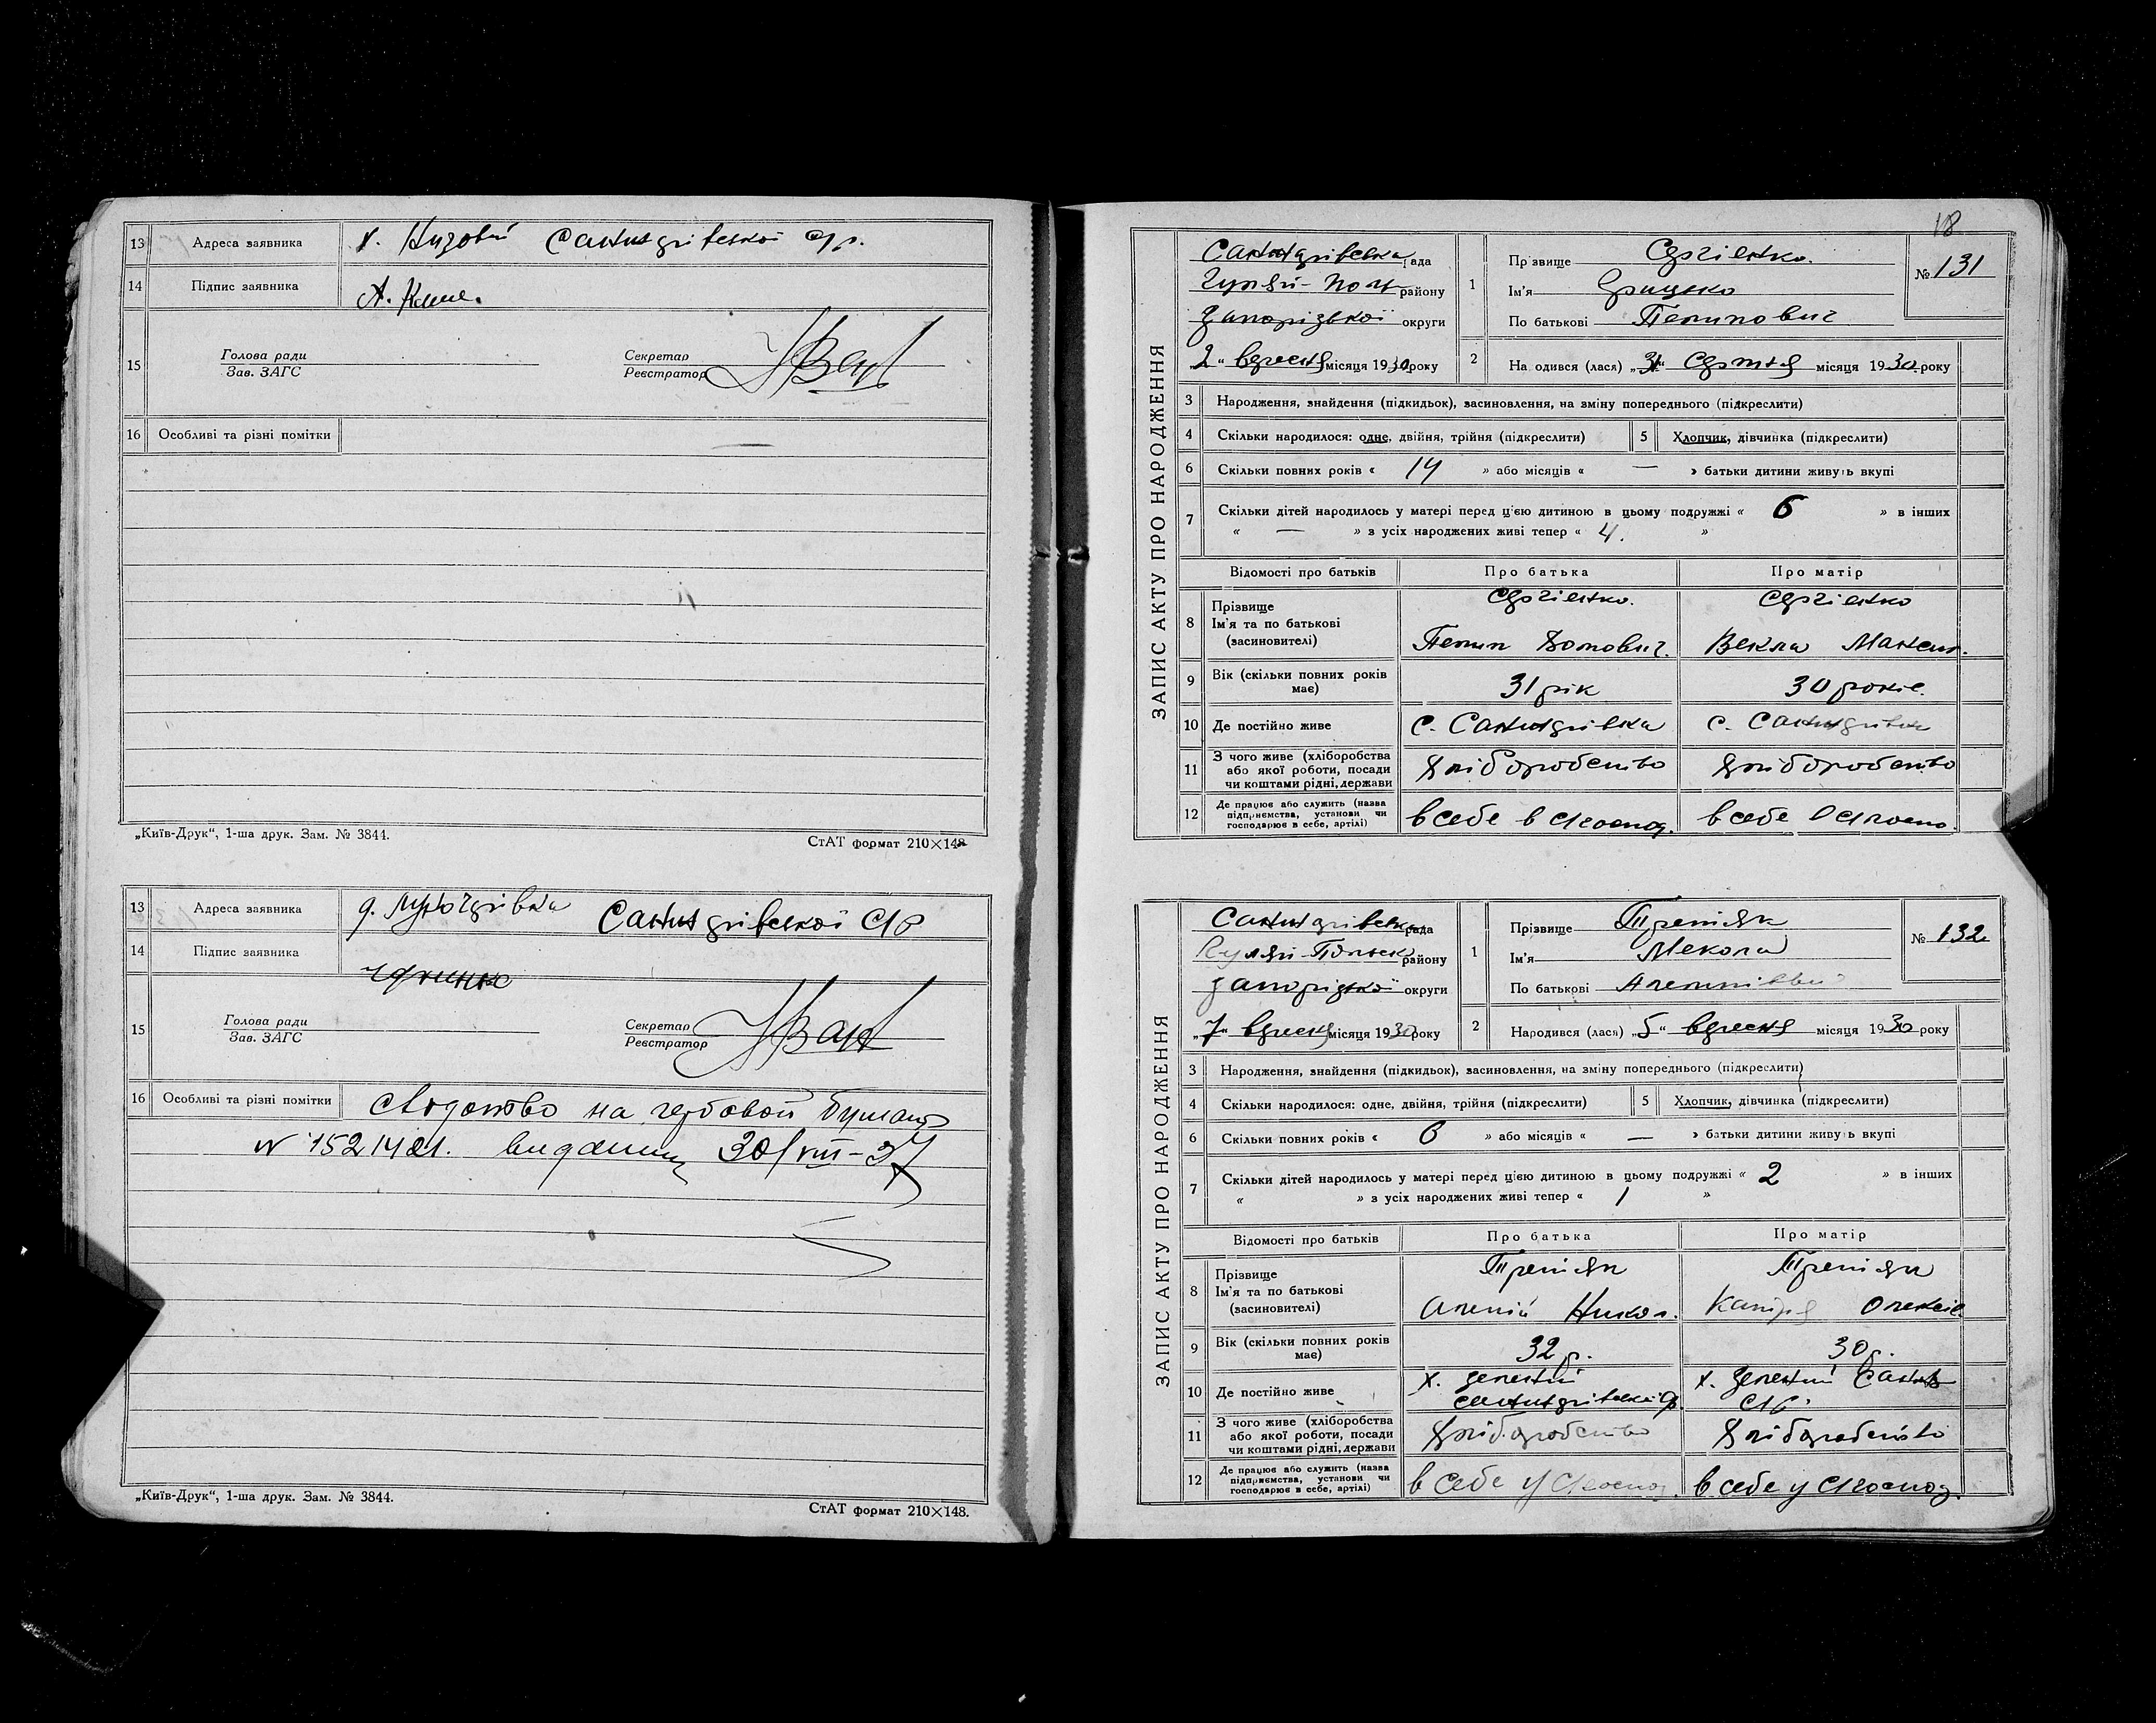 13 Адреса заявника х. Низовий Санжарівської с/р.
14 Підпис заявника
15 Голова ради
Зав. ЗАГС
Секретар
Реєстратор
16 Особливі та різні помітки
„Київ-Друк“, 1-ша друк. Зам. № 3844.
СтАТ формат 210×148
13 Адреса заявника Санжарівської с/р
14 Підпис заявника
15 Голова ради
Зав. ЗАГС
Секретар
Реєстратор
16 Особливі та різні помітки на гербовой бумаге
N 152 30/VIII-37
„Київ-Друк“, 1-ша друк. Зам. № 3844.
СтАТ формат 210×148.
18
ЗАПИС АКТУ ПРО НАРОДЖЕННЯ
Санжарівська рада
Гуляй-Поль району
Запорізької округи
„2“ вересня місяця 1930 року
1 Прізвище Сергієнко.
Ім'я Грицько
По батькові Пилипович
№ 131
2 Народився (лася) „31“ серпня місяця 1930 року
3 Народження, знайдення (підкидьок), засиновлення, на зміну попереднього (підкреслити)
4 Скільки народилося: одне, двійня, трійня (підкреслити)
5 Хлопчик, дівчинка (підкреслити)
6 Скільки повних років « 14 » або місяців « — » батьки дитини живуть вкупі
7 Скільки дітей народилось у матері перед цією дитиною в цьому подружжі « 6 » в інших
« — » з усіх народжених живі тепер « 4. »
Відомості про батьків Про батька Про матір
8 Прізвище Сергієнко. Сергієнко
Ім'я та по батькові
(засиновителі) Пилип Векла
9 Вік (скільки повних років має) 31 рік 30 років.
10 Де постійно живе с. Санжарівка с. Санжарівка
11 З чого живе (хліборобства
або якої роботи, посади
чи коштами рідні, держави хліборобство хліборобство
12 Де працює або служить (назва
підприємства, установи чи
господарює в себе, артілі) в себе в с/господ. в себе в с/госпо.
ЗАПИС АКТУ ПРО НАРОДЖЕННЯ
Санжарівська рада
Гуляй-Польск району
Запорізької округи
„7“ вересня місяця 1930 року
1 Прізвище Третяк
Ім'я Микола
По батькові
№ 132
2 Народився (лася) „5“ вересня місяця 1930 року
3 Народження, знайдення (підкидьок), засиновлення, на зміну попереднього (підкреслити)
4 Скільки народилося: одне, двійня, трійня (підкреслити)
5 Хлопчик, дівчинка (підкреслити)
6 Скільки повних років « 6 » або місяців « — » батьки дитини живуть вкупі
7 Скільки дітей народилось у матері перед цією дитиною в цьому подружжі « 2 » в інших
« » з усіх народжених живі тепер « 1 »
Відомості про батьків Про батька Про матір
8 Прізвище Третяк Третяк
Ім'я та по батькові
(засиновителі) Никол. Олексіє.
9 Вік (скільки повних років має) 32 р. 30 р.
10 Де постійно живе х. Зелений Санжарівської с/р. х. Зелений Санж. с/р.
11 З чого живе (хліборобства
або якої роботи, посади
чи коштами рідні, держави хліборобство хліборобство
12 Де працює або служить (назва
підприємства, установи чи
господарює в себе, артілі) в себе у с/господ. в себе у с/господ.